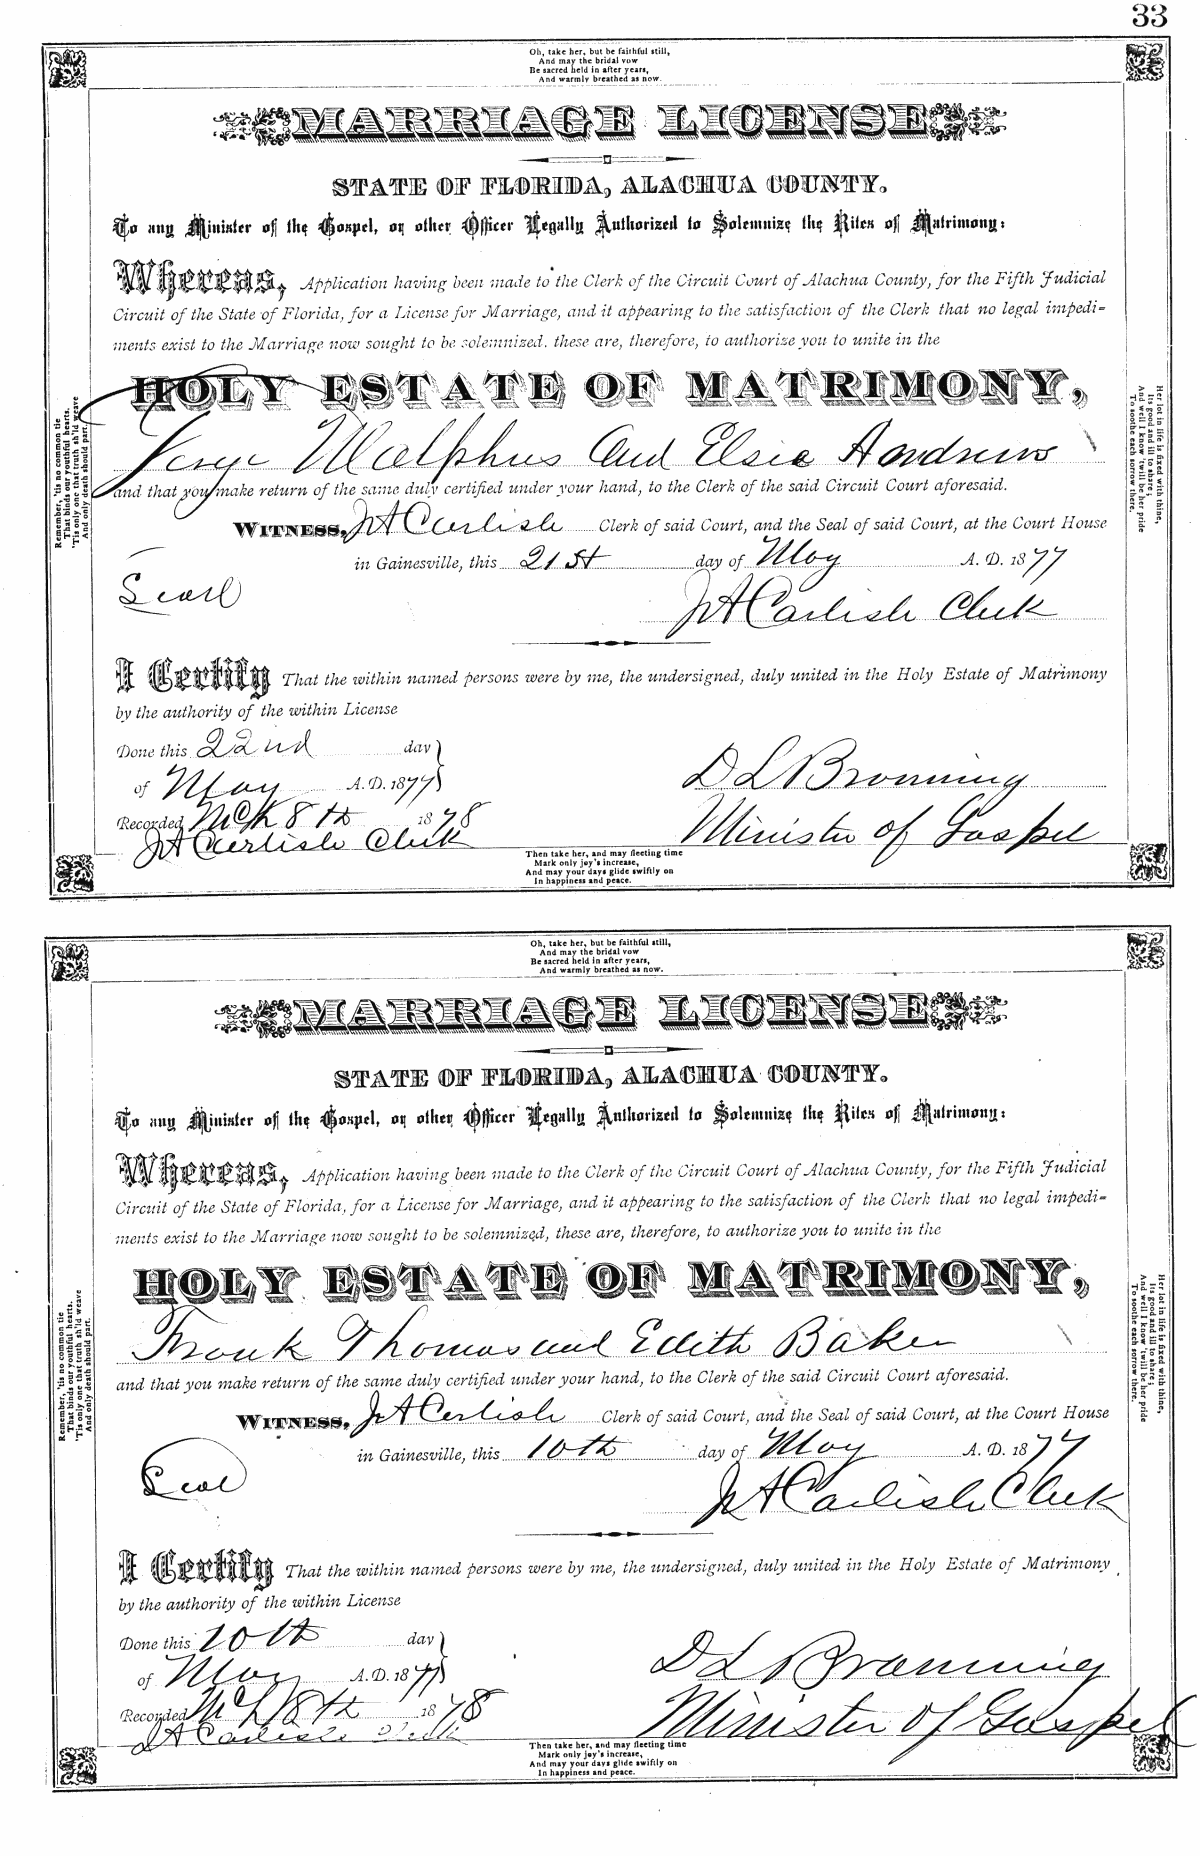 33
Oh, take her, but be faithful still,
And may the bridal vow
Be sacred held in after years,
And warmly breathed as now.
MARRIAGE LICENSE
STATE OF FLORIDA, ALACHUA COUNTY.
To any Minister of the Gospel, or other Officer Legally Authorized to Solemnize the Rites of Matrimony:
Whereas, Application having been made to the Clerk of the Circuit Court of Alachua County, for the Fifth Judicial
Circuit of the State of Florida, for a License for Marriage, and it appearing to the satisfaction of the Clerk that no legal impedi=
ments exist to the Marriage now sought to be solemnized. these are, therefore, to authorize you to unite in the
HOLY ESTATE OF MATRIMONY,
Malphus and Elsie Andrews
and that you make return of the same duly certified under your hand, to the Clerk of the said Circuit Court aforesaid.
WITNESS, JA Carlisle Clerk of said Court, and the Seal of said Court, at the Court House
in Gainesville, this 21st day of May A. D. 1877
Seal
JA Carlisle Clerk
I Certify That the within named persons were by me, the undersigned, duly united in the Holy Estate of Matrimony
by the authority of the within License
Done this 22nd day
of May A. D. 1877
D L Branning
Recorded Mch 8th 1878
Minister of Gospel
JA Carlisle Clerk
Then take her, and may fleeting time
Mark only joy's increase,
And may your days glide swiftly on
In happiness and peace.
Remember, 'tis no common tie
That binds our youthful hearts,
'Tis only one that truth sh'ld weave
And only death should part.
Her lot in life is fixed with thine,
Its good and ill to share;
And well I know 'twill be her pride
To soothe each sorrow there.
Oh, take her, but be faithful still,
And may the bridal vow
Be sacred held in after years,
And warmly breathed as now.
MARRIAGE LICENSE
STATE OF FLORIDA, ALACHUA COUNTY.
To any Minister of the Gospel, or other Officer Legally Authorized to Solemnize the Rites of Matrimony:
Whereas, Application having been made to the Clerk of the Circuit Court of Alachua County, for the Fifth Judicial
Circuit of the State of Florida, for a License for Marriage, and it appearing to the satisfaction of the Clerk that no legal impedi=
ments exist to the Marriage now sought to be solemnized, these are, therefore, to authorize you to unite in the
HOLY ESTATE OF MATRIMONY,
Frank Thomas and Edith Baker
and that you make return of the same duly certified under your hand, to the Clerk of the said Circuit Court aforesaid.
WITNESS, JA Carlisle Clerk of said Court, and the Seal of said Court, at the Court House
in Gainesville, this 10th day of May A. D. 1877
Seal
JA Carlisle Clerk
I Certify That the within named persons were by me, the undersigned, duly united in the Holy Estate of Matrimony
by the authority of the within License
Done this 10th day
of May A. D. 1877
D L Branning
Recorded Mch 8th 1878
Minister of Gospel
JA Carlisle Clerk
Then take her, and may fleeting time
Mark only joy's increase,
And may your days glide swiftly on
In happiness and peace.
Remember, 'tis no common tie
That binds our youthful hearts,
'Tis only one that truth sh'ld weave
And only death should part.
Her lot in life is fixed with thine,
Its good and ill to share;
And well I know 'twill be her pride
To soothe each sorrow there.